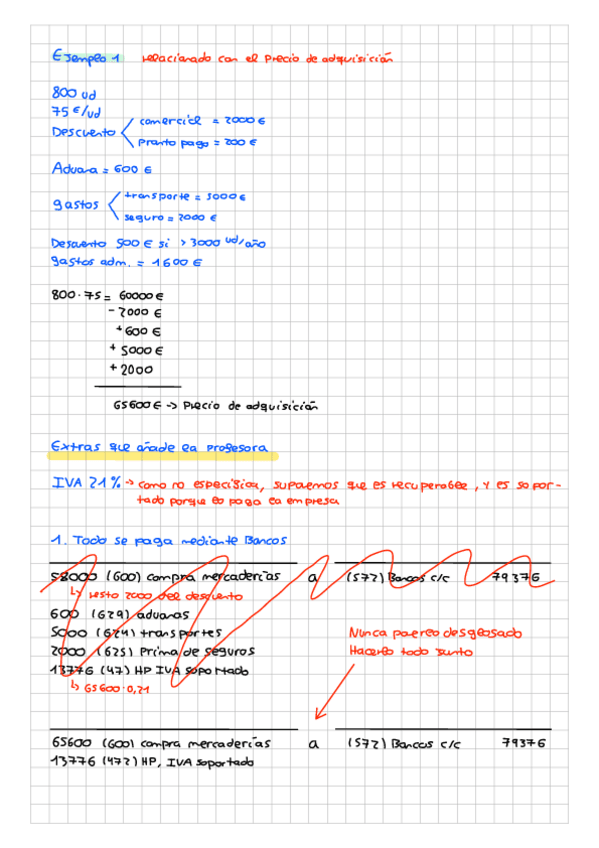 Ejemplo 1 relacionado con el precio de adquisición
800 ud
75 €/ud
Descuento comercial = 2000 €
pronto pago = 200 €
Aduana = 600 €
gastos transporte = 5000 €
seguro = 2000 €
Descuento 500 € si > 3000 ud/año
gastos adm. = 1600 €
800 · 75 = 60000 €
- 2000 €
+ 600 €
+ 5000 €
+ 2000
65600 € -> Precio de adquisición
Extras que añade la profesora
IVA 21% -> como no especifica, suponemos que es recuperable, y es sopor-
tado porque lo paga la empresa
1. Todo se paga mediante Bancos
58000 (600) compra mercaderías a (572) Bancos c/c 79376
↳ resto 2000 del descuento
600 (629) aduanas
5000 (624) transportes
2000 (625) Prima de seguros
13776 (47) HP IVA soportado
↳ 65600 · 0,21
Nunca ponerlo desglosado
Hacerlo todo junto
65600 (600) compra mercaderías a (572) Bancos c/c 79376
13776 (472) HP, IVA soportado